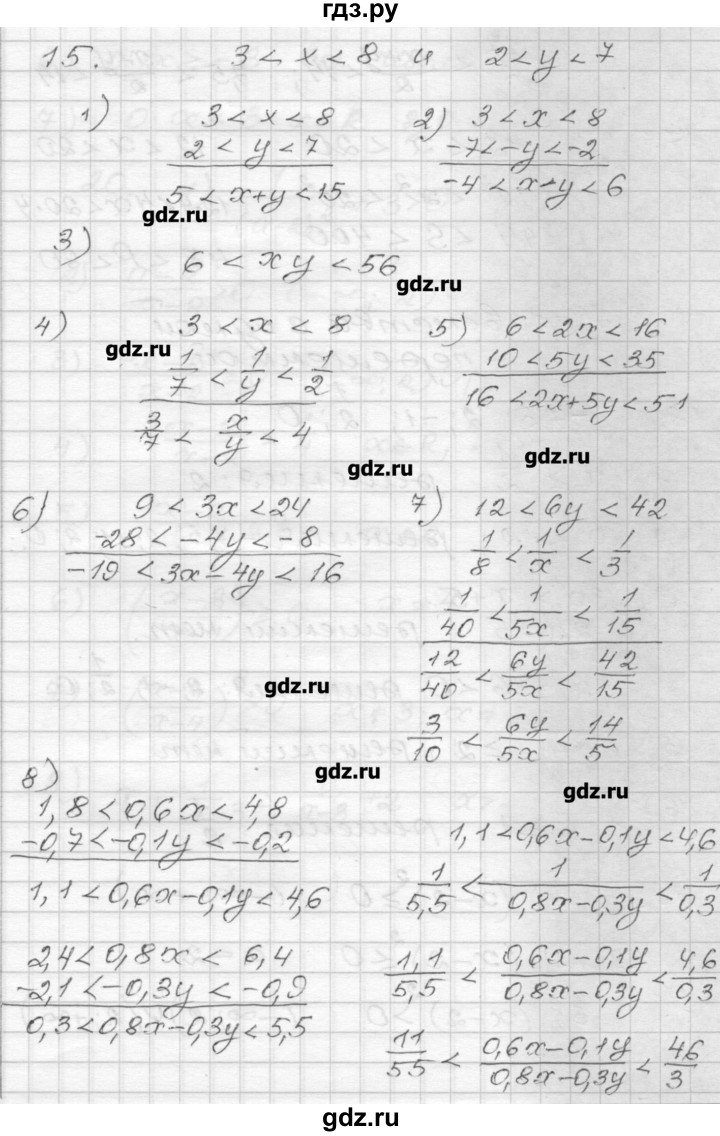 гдз.ру
15. 3 < x < 8 и 2 < y < 7
1) 3 < x < 8
2 < y < 7
5 < x+y < 15
2) 3 < x < 8
-7 < -y < -2
-4 < x-y < 6
gdz.ru
3) 6 < xy < 56
gdz.ru
4) 3 < x < 8
gdz.ru
1/7 < 1/y < 1/2
3/7 < x/y < 4
5) 6 < 2x < 16
10 < 5y < 35
16 < 2x+5y < 51
gdz.ru
gdz.ru
6) 9 < 3x < 24
-28 < -4y < -8
-19 < 3x-4y < 16
7) 12 < 6y < 42
1/8 < 1/x < 1/3
1/40 < 1/5x < 1/15
12/40 < 6y/5x < 42/15
3/10 < 6y/5x < 14/5
gdz.ru
gdz.ru
gdz.ru
8)
1,8 < 0,6x < 4,8
-0,7 < -0,1y < -0,2
1,1 < 0,6x-0,1y < 4,6
2,4 < 0,8x < 6,4
-2,1 < -0,3y < -0,9
0,3 < 0,8x-0,3y < 5,5
1,1 < 0,6x-0,1y < 4,6
1/5,5 < 1/0,8x-0,3y < 1/0,3
1,1/5,5 < 0,6x-0,1y/0,8x-0,3y < 4,6/0,3
11/55 < 0,6x-0,1y/0,8x-0,3y < 46/3
gdz.ru